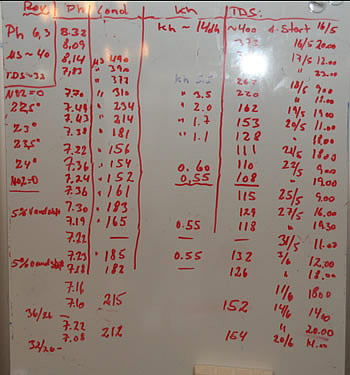 Rev. Ph Cond kh TDS:
Ph 6,3 8.32 kh ~ 14dh ~400 Start 16/5
8,09 373 16/5 20.00
µS ~ 40 8,14 µS 490 17/5 12.00
TDS ~ 32 7,83 390 23.00
373 262 18/5 9.00
NO2=0 7.70 " 310 " 3.5 220 " 18.00
22,5° 7.49 " 234 " 2.0 162 19/5 19.00
7.43 " 214 " 1.7 153 20/5 11.00
23° 7.38 " 181 " 1.1 128 " 18.00
23,5° 7.22 " 156 111 21/5 18.00
24° 7.36 " 154 0.60 110 22/5 9.00
NO2=0 7.24 " 152 0.55 108 " 19.00
7.36 " 161 115 25/5 9.00
7.30 " 183 129 27/5 16.00
5% 7.19 " 165 0.55 118 " 19.30
7.22 — — — 31/5 11.00
7.23 " 185 0.55 132 3/6 12.00
5% 7.18 " 182 126 " 18.00
7.16 11/6 18.00
7.10 215 152 14/6 14.10
36/26 7.22 " 20.00
32/20 - 7.08 212 154 20/6